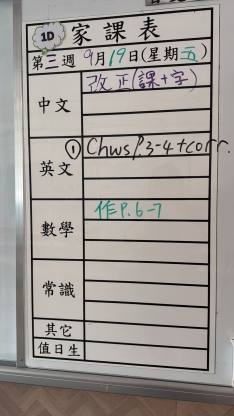 1D 家課表
第三週 9月19日(星期五)
中文 改正(課+字)
英文 ① Chws P.3-4 + corr.
數學 作P.6-7
常識
其它
值日生